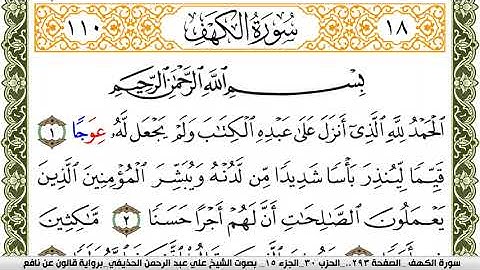 ١٨ سُورَةُ الكَهْفِ ١١٠
بِسْمِ اللَّهِ الرَّحْمَٰنِ الرَّحِيمِ
الحَمْدُ لِلهِ الذِىٓ أَنزَلَ عَلَىٰ عَبْدِهِ الكِتَٰبَ وَلَمْ يَجْعَل لَّهُۥ عِوَجًا ١
قَيِّمًا لِّيُنذِرَ بَأْسًا شَدِيدًا مِّن لَّدُنْهُ وَيُبَشِّرَ المُؤْمِنِينَ الذِينَ
يَعْمَلُونَ الصَّٰلِحَٰتِ أَنَّ لَهُمْ أَجْرًا حَسَنًا ٢ مَّٰكِثِينَ
سورة الكهف _الصفحة ٢٩٣.. _الحزب ٣٠_ الجزء ١٥_ بصوت الشيخ علي عبد الرحمن الحذيفي_ برواية قالون عن نافع